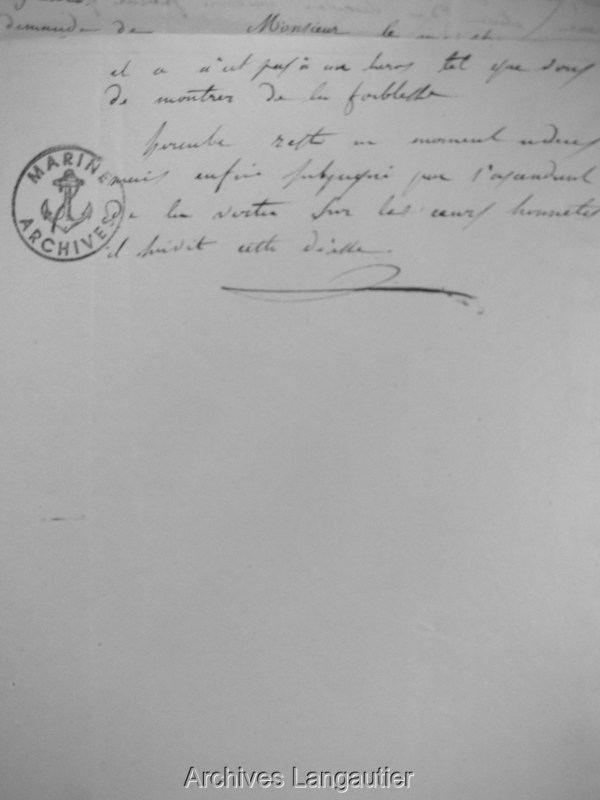 demande de Monsieur le
il a n'est pas à un heros tel que vous
de montrer de la foiblesse
reste un moment
mais enfin subjugué par l'ascendant
de la vertu sur les cœurs honnetes
il suivit cette déesse
MARINE
ARCHIVES
Archives Langautier